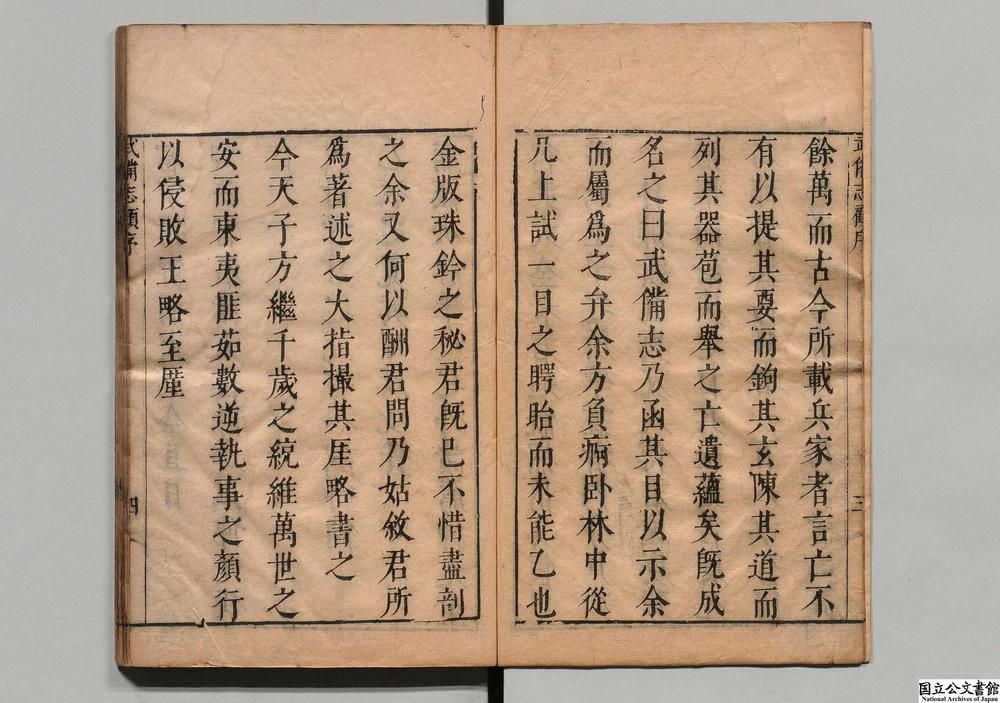 武備志顧序
三
餘萬而古今所載兵家者言亡不
有以提其要而鉤其玄陳其道而
列其器苞而舉之亡遺蘊矣旣成
名之曰武備志乃函其目以示余
而屬爲之弁余方負痾卧林中從
几上試一目之瞠眙而未能乙也
金版珠鈐之秘君旣已不惜盡剖
之余又何以酬君問乃姑敘君所
爲著述之大指撮其厓略書之
今天子方繼千歲之統維萬世之
安而東夷匪茹數逆執事之顏行
以侵敗王略至廑
武備志顧序
四
国立公文書館
National Archives of Japan